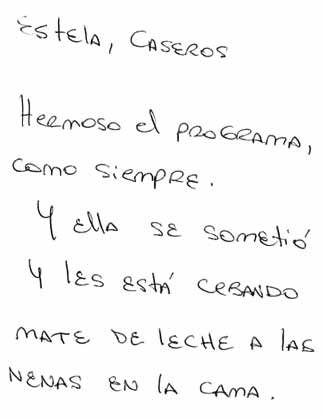 Estela, Caseros
Hermoso el programa,
como siempre.
Y ella se sometió
Y les está cebando
mate de leche a las
nenas en la cama.